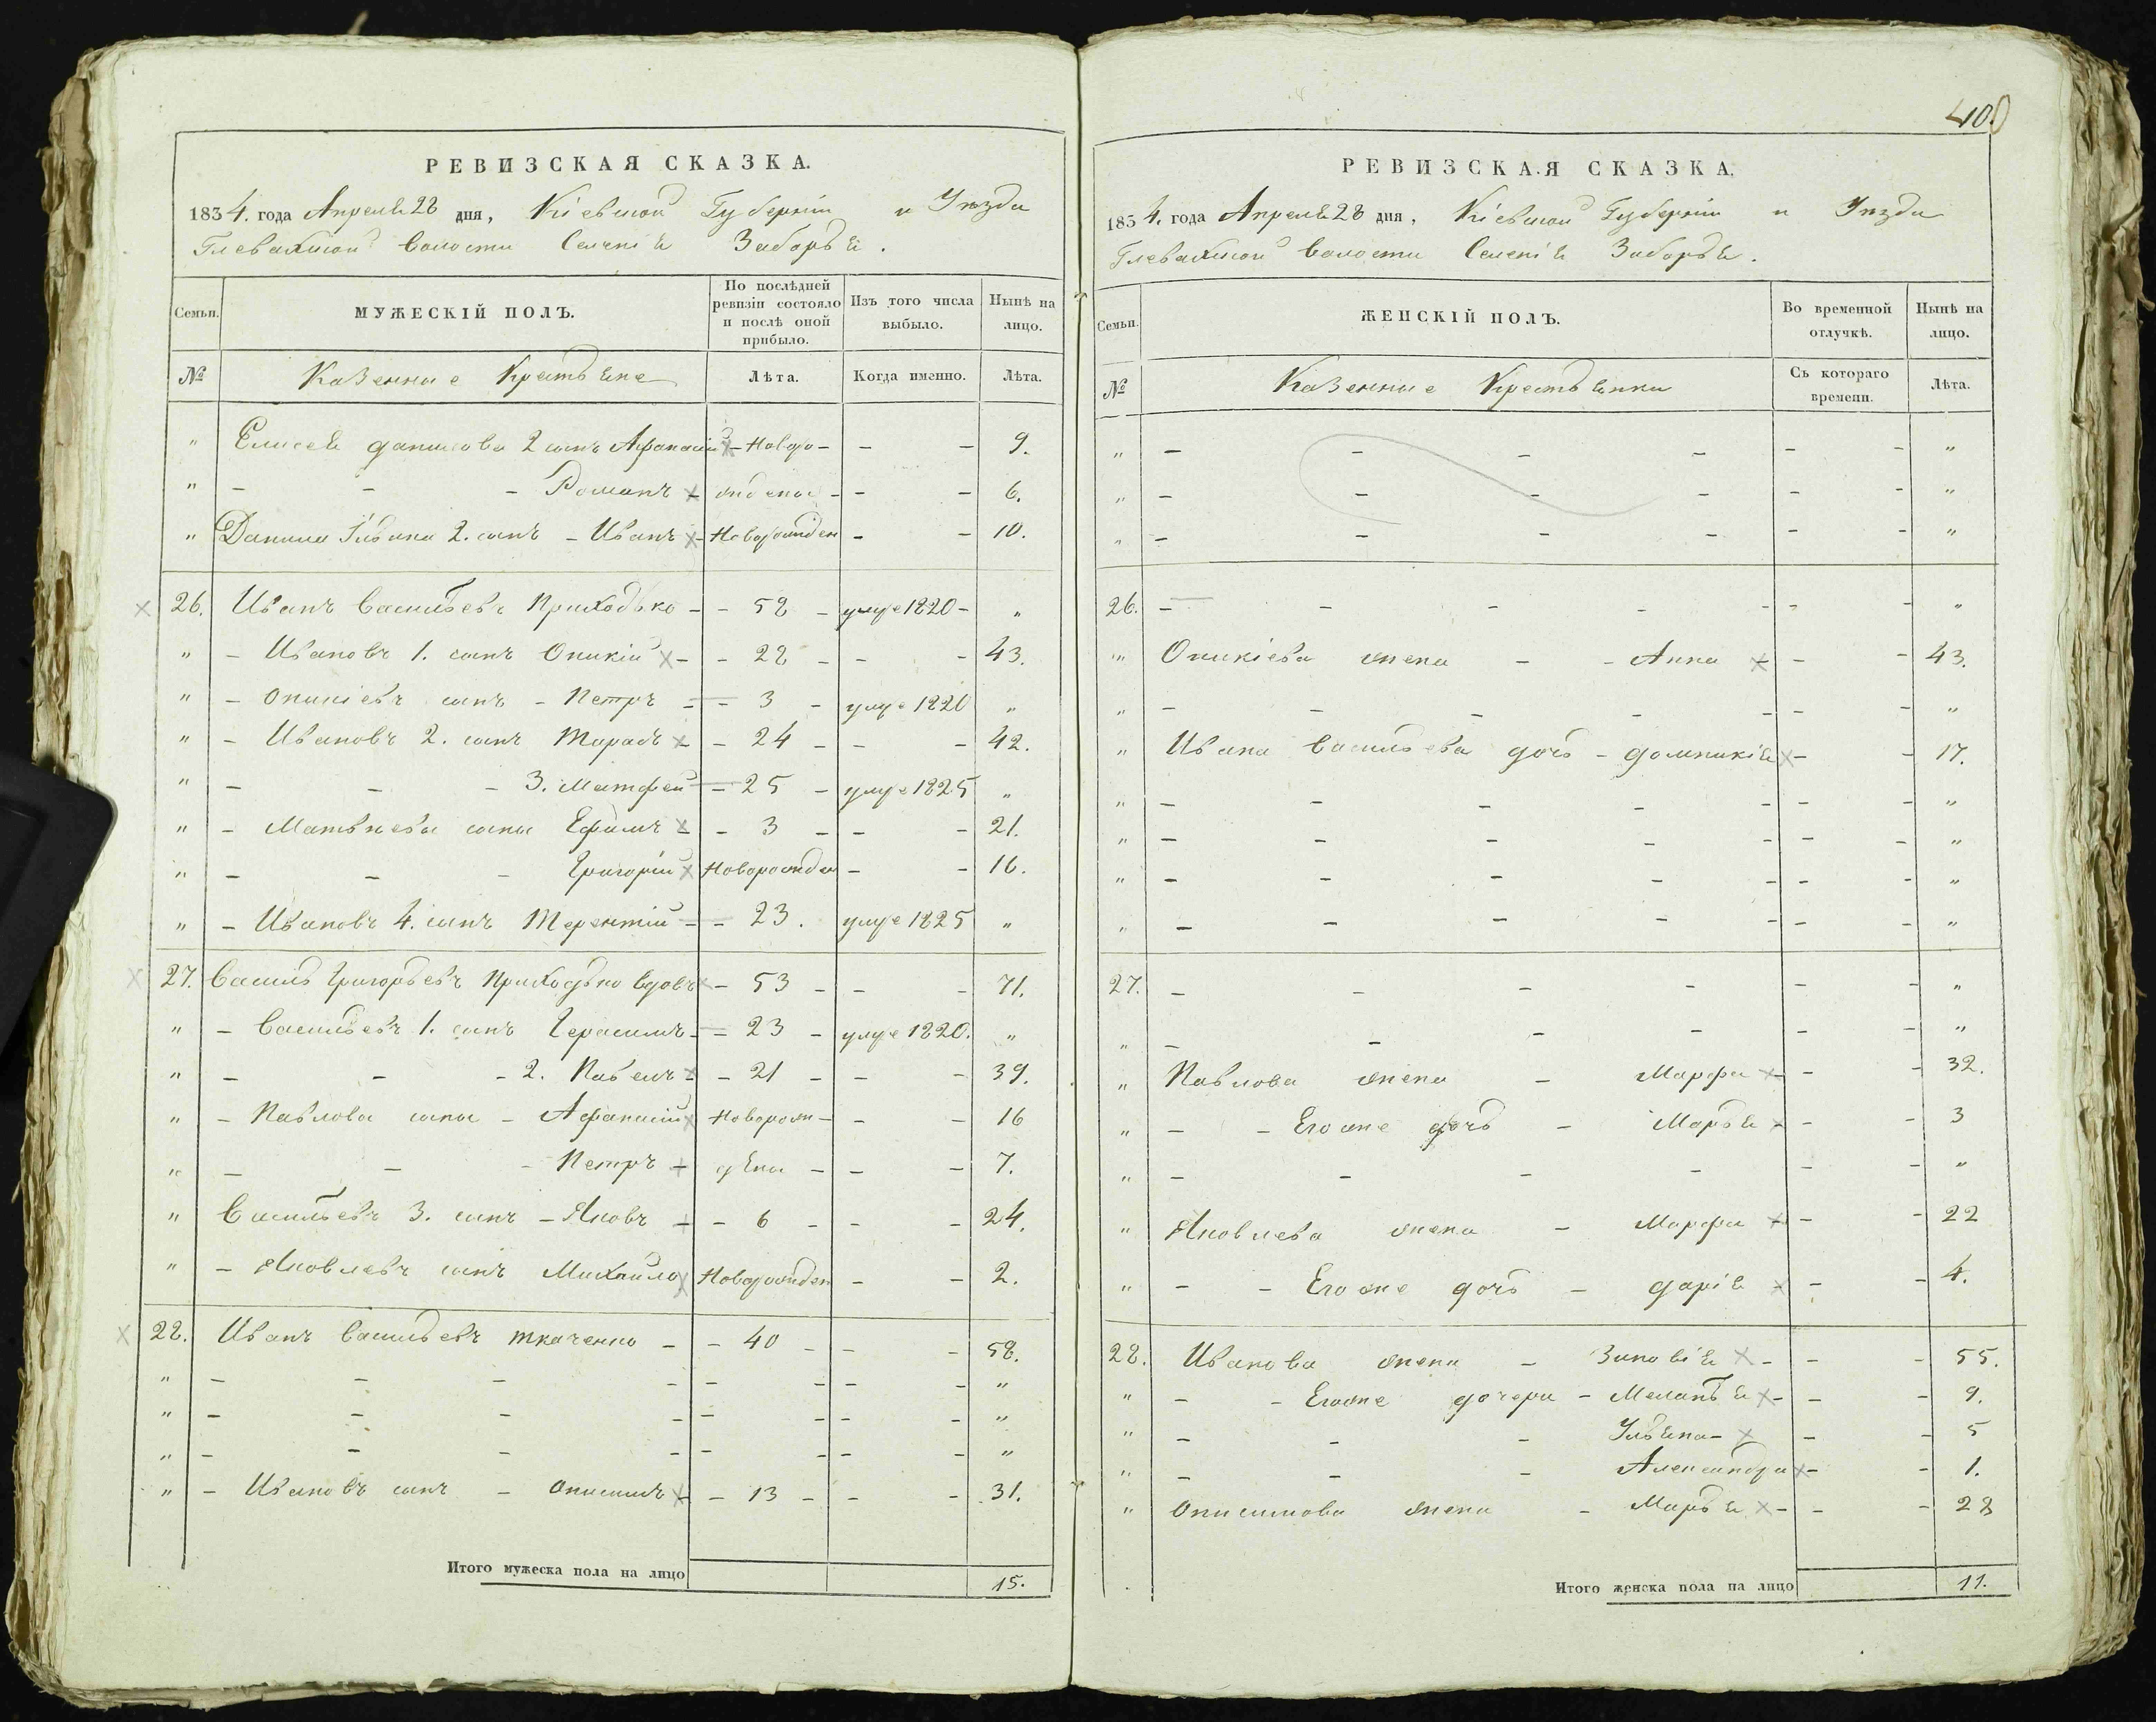 400
РЕВИЗСКАЯ СКАЗКА.
1834. года Апреля 28 дня, Кіевской Губерніи и Уезда
Глевахской Волости Селенія Заборья.
Семьи.
МУЖЕСКІЙ ПОЛЪ.
По послѣдней ревизіи состояло и послѣ оной прибыло.
Изъ того числа выбыло.
Нынѣ на лицо.
№
Казенные Крестьяне
Лѣта.
Когда именно.
Лѣта.
" Елисея Данилова 2 сынъ Афанасій - Новоро - - - 9.
" - - - Романъ - жденые - - - 6.
" Данила 2. сынъ - Иванъ - Новорожден - - 10.
26. Иванъ Васильевъ Приходько - - 58 - умре 1820 - "
" - Ивановъ 1. сынъ Оникій - - 28 - - - 43.
" - Оникіевъ сынъ - Петръ - - 3 - умре 1820 "
" - Ивановъ 2. сынъ Тарасъ - - 24 - - - 42.
" - - - 3. Матфей - 25 - умре 1825 "
" - Матвѣева сыны Ефимъ - - 3 - - - 21.
" - - - Григорій Новорожден - - 16.
" - Ивановъ 4. сынъ Терентій - - 23. умре 1825 "
27. Василь Григорьевъ Приходько вдовъ - 53 - - - 71.
" - Васильевъ 1. сынъ Герасимъ - - 23 - умре 1820. "
" - - - 2. Павелъ - - 21 - - - 39.
" - Павлова сыны - Афанасій Новорож - - - 16
" - - - Петръ - дены - - - 7.
" Васильевъ 3. сынъ - Яковъ - - 6 - - - 24.
" - Яковлевъ сынъ Михайло Новорожден - - 2.
28. Иванъ Васильевъ Ткаченко - - 40 - - - 58.
" - - - - - - - - "
" - - - - - - - - "
" - - - - - - - - "
" - Ивановъ сынъ - Онисимъ - - 13 - - - 31.
Итого мужеска пола на лицо 15.
РЕВИЗСКАЯ СКАЗКА.
1834. года Апреля 28 дня, Кіевской Губерніи и Уезда
Глевахской Волости Селенія Заборья.
Семьи.
ЖЕНСКІЙ ПОЛЪ.
Во временной отлучкѣ.
Нынѣ на лицо.
№
Казенные Крестьянки
Съ котораго времени.
Лѣта.
" - - - - - - "
" - - - - - - "
" - - - - - - "
26. - - - - - - - "
" Оникіева жена - - Анна - - - 43.
" - - - - - - - "
" Ивана Васильева дочь - Домникія - - 17.
" - - - - - - - "
" - - - - - - - "
" - - - - - - - "
" - - - - - - - "
27. - - - - - - "
" - - - - - - "
" Павлова жена - Марфа - - - 32.
" - - Его же дочь - Марья - - - 3
" - - - - - - "
" Яковлева жена - Марфа - - - 22
" - - Его же дочь - Дарія - - 4.
28. Иванова жена - Зиновія - - - 55.
" - - Его же дочери - Меланья - - - 9.
" - - - Ульяна - - - 5
" - - - Александра - - 1.
" Онисимова жена - Марья - - - 28
Итого женска пола на лицо 11.